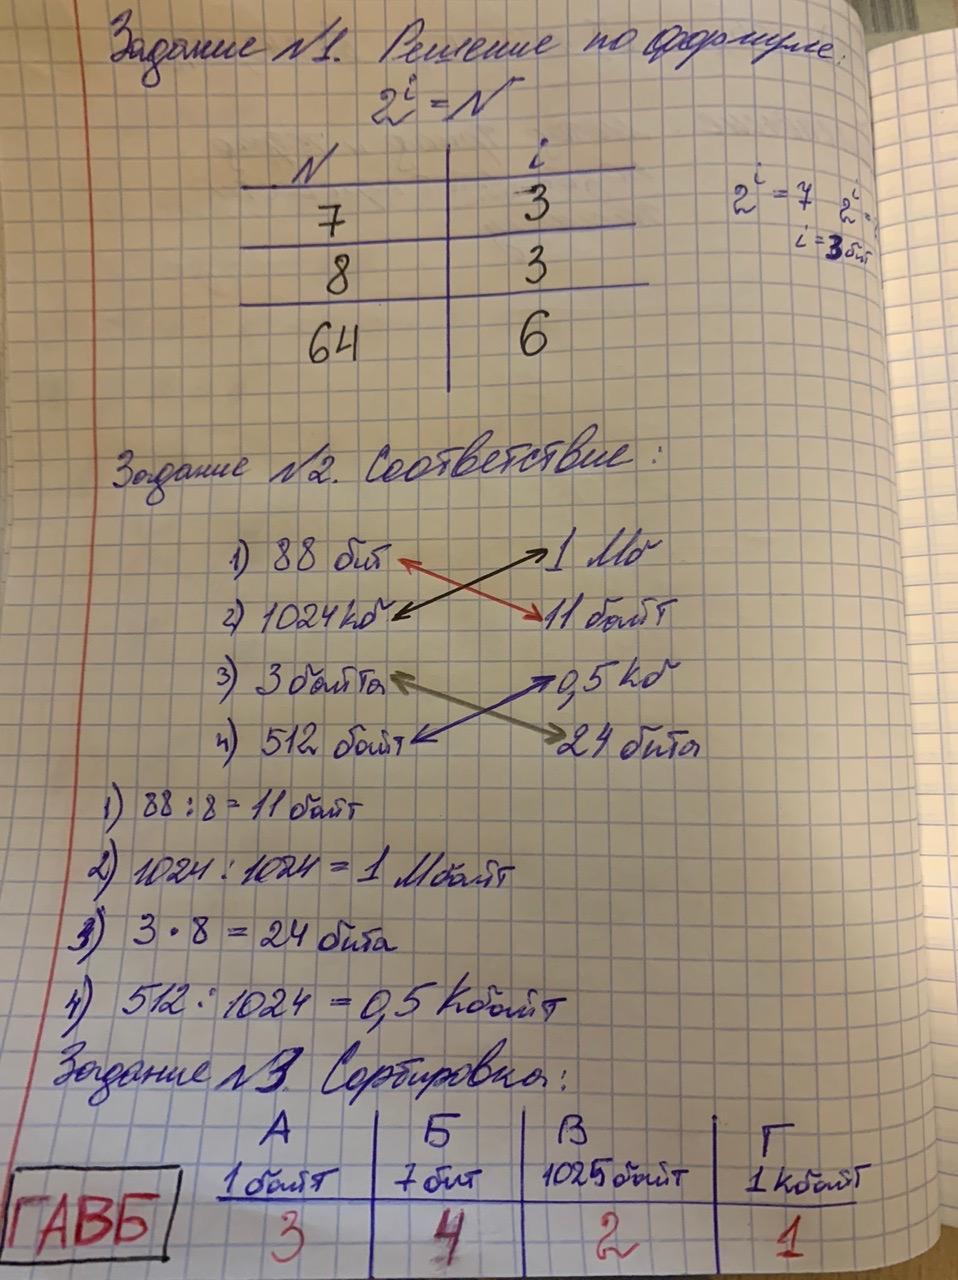 Задание №1. Решение по формуле:
2^i = N
N i
7 3
8 3
64 6
2^i = 7 2^i =
i = 3 бит
Задание №2. Соответствие:
1) 88 бит 1 Мб
2) 1024 Кб 11 байт
3) 3 байта 0,5 Кб
4) 512 байт 24 бита
1) 88 : 8 = 11 байт
2) 1024 : 1024 = 1 Мбайт
3) 3 • 8 = 24 бита
4) 512 : 1024 = 0,5 Кбайт
Задание №3. Сортировка:
А Б В Г
1 байт 7 бит 1025 байт 1 Кбайт
ГАВБ 3 4 2 1